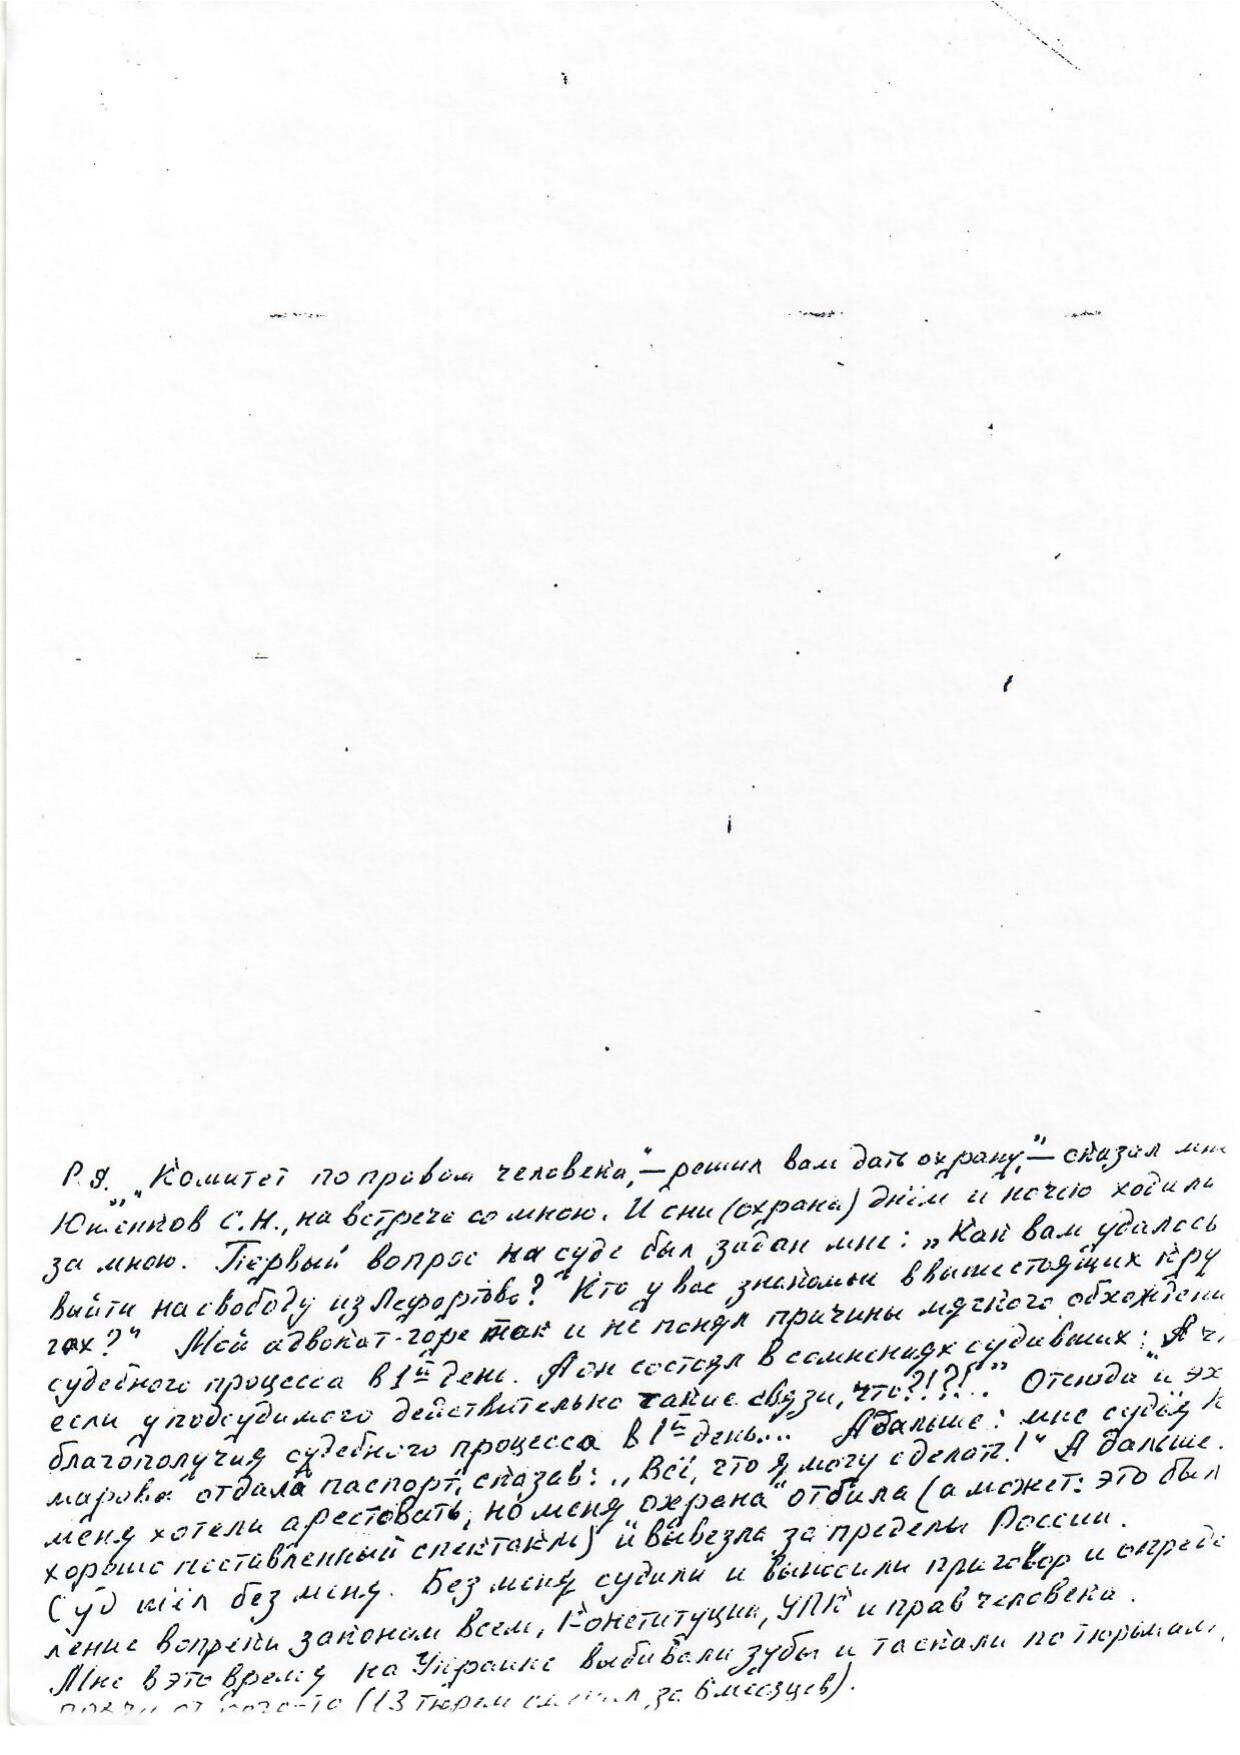 P.S. „Комитет по правам человека,“ — решил вам дать охрану,“ — сказал мне
Юшенков С.Н., на встрече со мною. И они (охрана) днём и ночью ходили
за мною. Первый вопрос на суде был задан мне: „Как вам удалось
выйти на свободу из Лефортово?“ Кто у вас знакомый в вышестоящих кру
гах?“ Мой адвокат-горе так и не понял причины мягкого обхождени
судебного процесса в 1ый день. А он состоял в сомнениях судивших: А
если у подсудимого действительно такие связи, что?!?!..“ Отсюда и
благополучия судебного процесса в 1ый день... А дальше: мне судья К
марова отдала паспорт, сказав: „Всё, что я могу сделать!“ А дальше.
меня хотели арестовать, но меня „охрана“ отбила (а может: это был
хорошо поставленный спектакль) и вывезла за пределы России.
Суд шёл без меня. Без меня судили и выносили приговор и опреде
ление вопреки законам всем, Конституции, УПК и прав человека.
Мне в это время на Украине выбивали зубы и таскали по тюрьмам,
(13 тюрем за 6 месяцев).